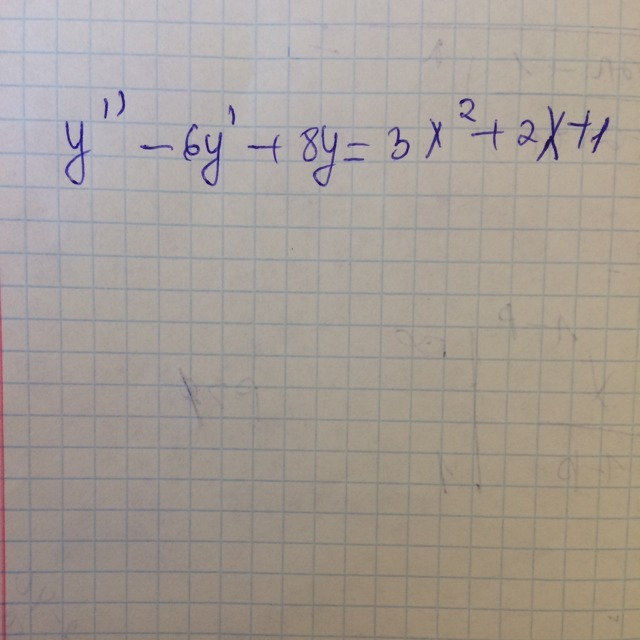 y'' - 6y' + 8y = 3x² + 2x + 1